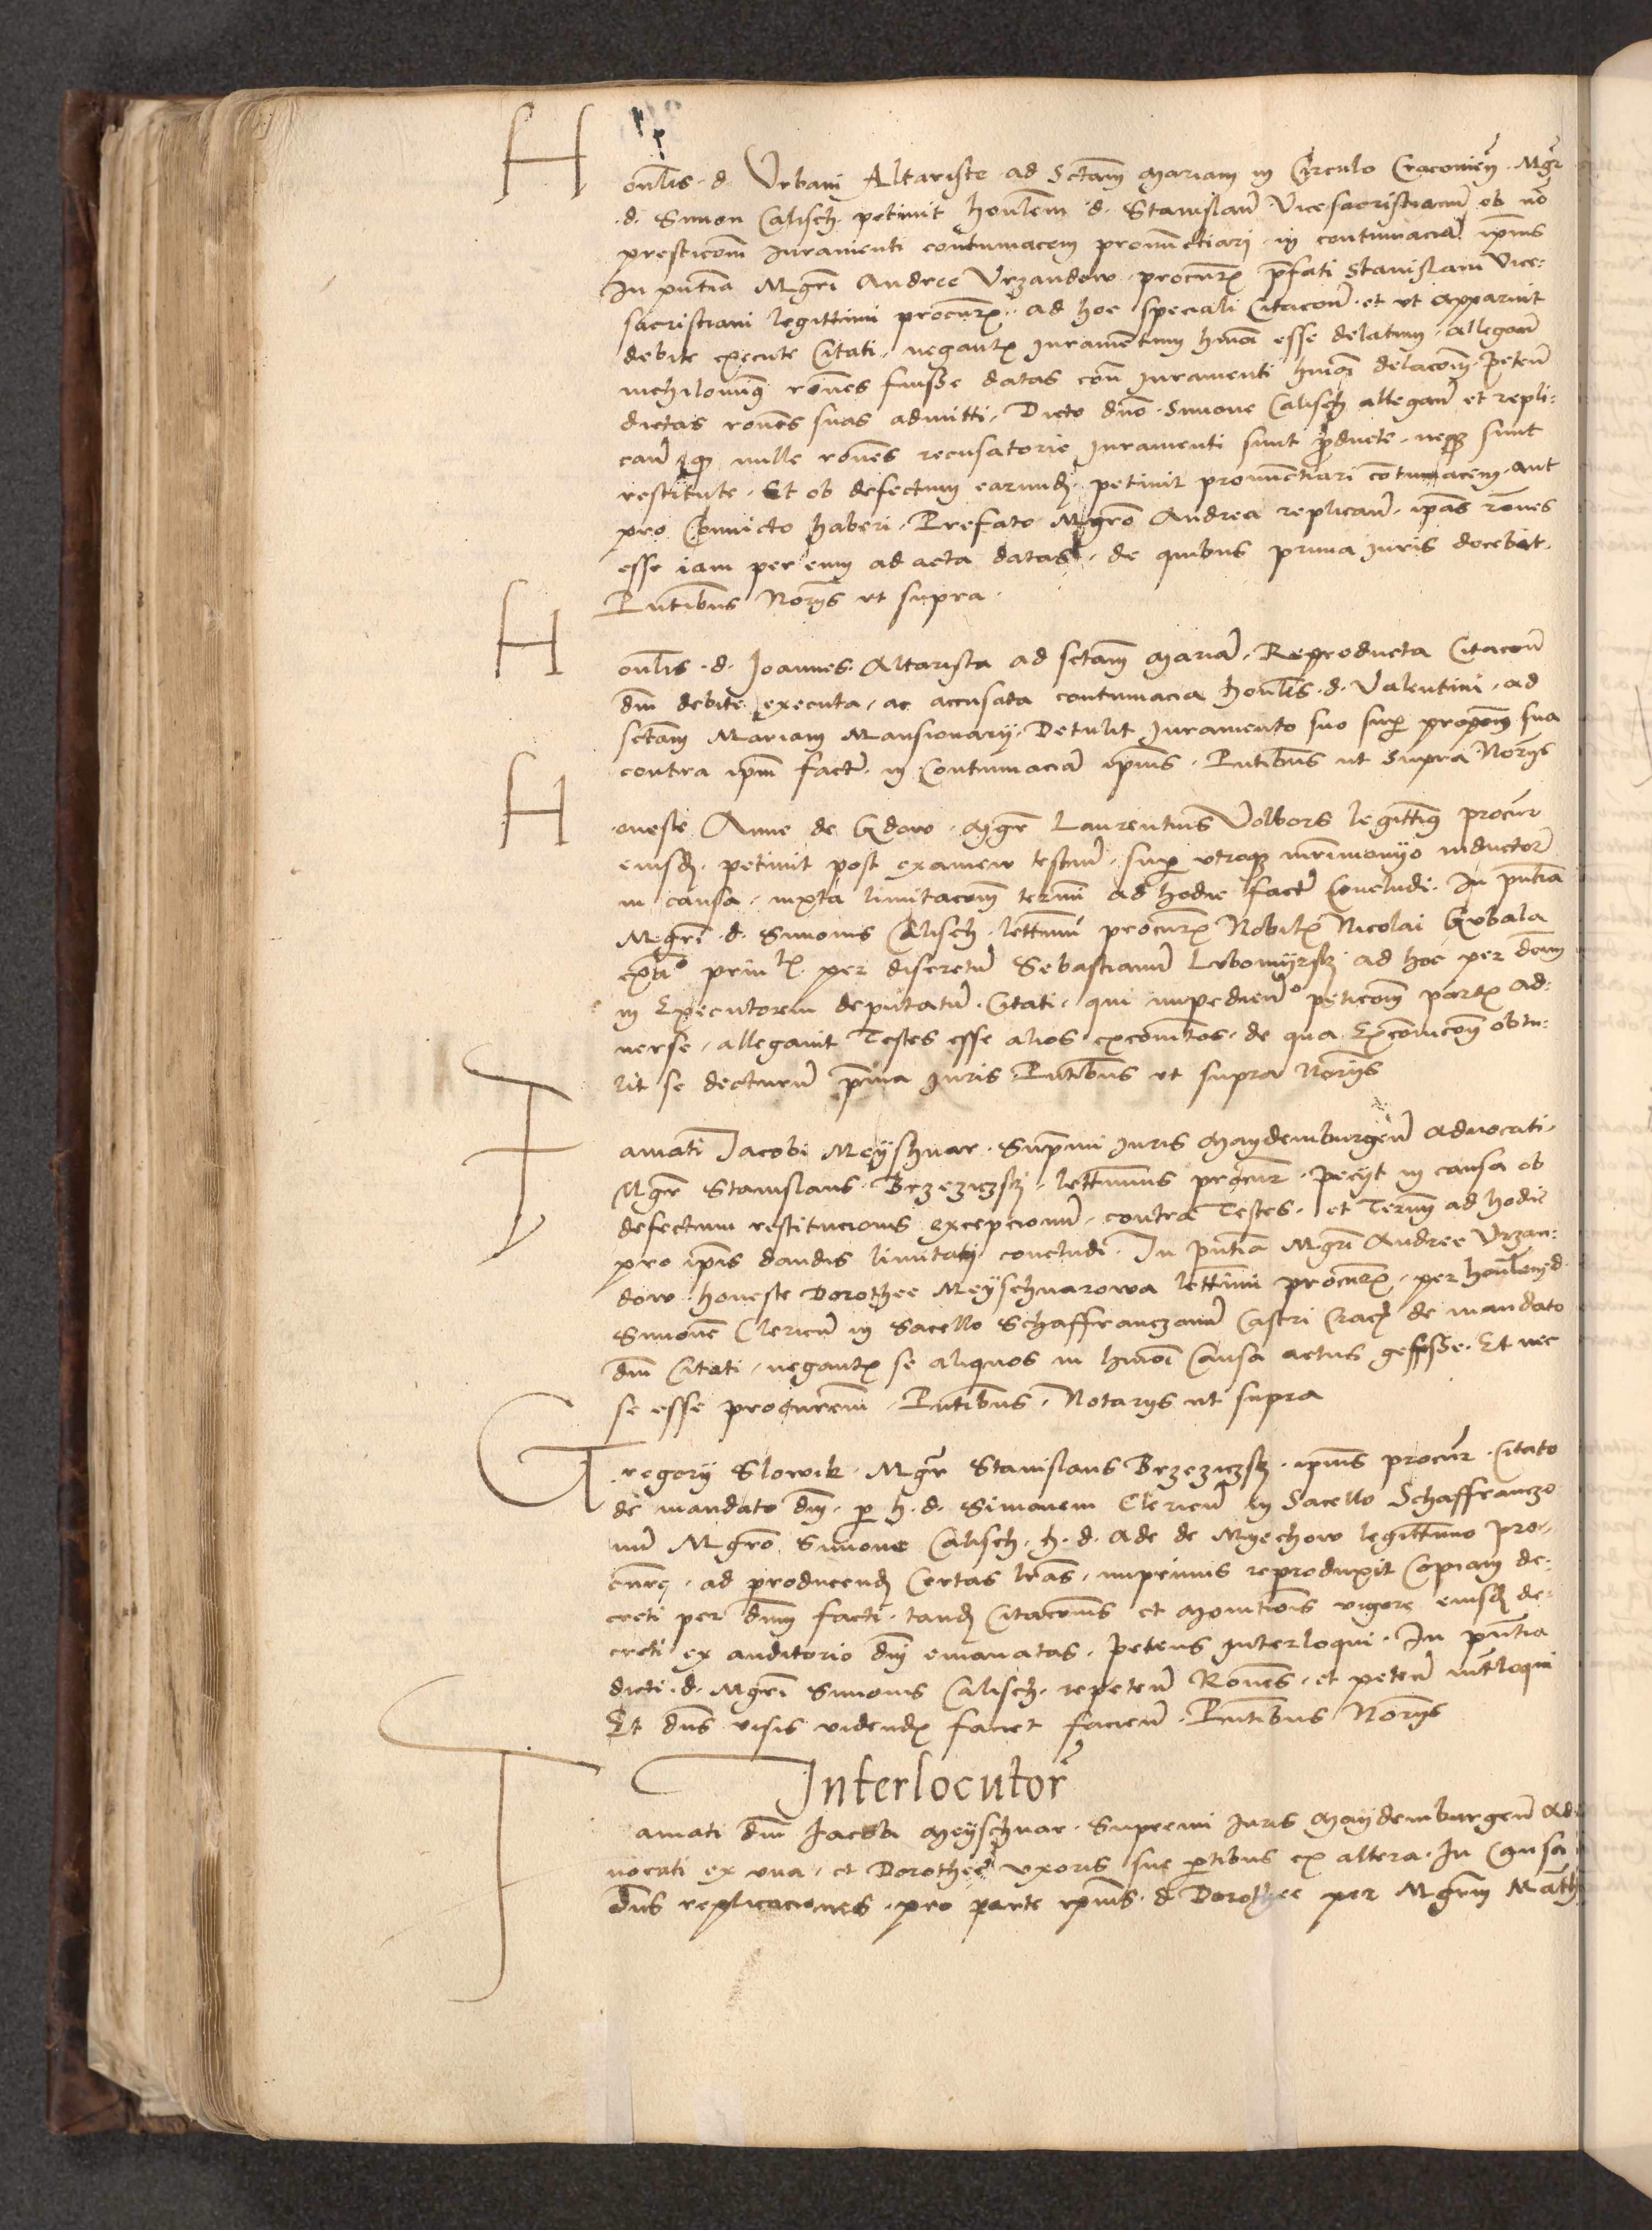 Honlis d. Vrbani Altariste ad Sctam Mariam in Circulo Cracovien Mgr
d. Simon Calisch petiuit honlem d. Stanislau Vicesacristianu ob no
presticom Juramenti contumacem pronunctiari in contumacia ipius
In pntia Mgri Andree Vrzandow procur pfati Stanislai Vice:
sacristiani legittimi procur ad hoc speciali Citacone et vt apparuit
debite execute Citati, negantis Juramentum hmoi esse delatum, allegan
nichilominus rones fuisse datas con Juramenti hmoi delacom, peten
dictas rones suas admitti, Dicto dno Simone Calisch allegan et repli:
can q nulle rones recusatorie Juramenti sunt producte neqz sunt
restitute, Et ob defectum earund petiuit pronunctiari contumacem aut
pro Conuicto haberi, Prefato Mgro Andrea replican, ipas rones
esse iam per eum ad acta datas, de quibus prima Juris docebit,
Pntibus Norijs vt supra
Honlis d. Joannes Altarista ad sctam Maria, Reproducta Citacon
dni debite executa, ac accusata contumacia honlis d. Valentini, ad
sctam Mariam Mansionarij, Detulit Juramento suo sup propom sua
contra ipm facta in Contumacia ipius, Pntibus vt Supra Norijs
Honeste Anne de Gdow Mgr Laurentius Volbors legittimus procur
eiusd, petiuit post examen testium sup vtroqz mrimonijo inductor
in causa, iuxta limitacom termi ad hodie facta Concludi, In pntia
Mgri d. Simonis Calisch lettimi procur Nobilis Nicolai Gxbala
per discretu Sebastianu Lubomyrski ad hoc per dnm
in Executorem deputatu Citati, qui impedien peticom partis ad:
uerse, allegauit Testes esse alios excomtos, de qua Excomcom obtu:
lit se docturu prima Juris Pntibus vt supra Norijs
Famati Jacobi Meyschnar Supmi Juris Maydemburgen aduocati,
Mgr Stanislaus Brzeziczski lettimus procur, pecijt in causa ob
defectum restitucionis excepcionu, contra Testes, et Termi ad hodie
pro ipis dandis limitati concludi, In pntia Mgri Andree Vrzan:
dow honeste Dorothee Meyschnarowa lettimi procur, per honlem d.
Simone Clericu in Sacello Schaffranczonu Castri Crac de mandato
dni Citati, negantis se aliquos in hmoi Causa actus gessisse, Et nec
se esse procurem, Pntibus Notarijs vt supra
Gregorij Slowik, Mgr Stanislaus Brzeziczski, ipius procur, Citato
de mandato dni, p h. d. Simonem Clericu in Sacello Schaffranczo
nu Mgro Simone Calisch, h. d. Ade de Myechow legittimo pro,
cure, ad producend Certas lras, inprimis reproduxit Copiam de:
creti per dnm facti, tand Citaconis et Monitionis vigore eiusd de:
creti ex auditorio dni emanatas, petens Interloqui, In pntia
dicti d. Mgri Simonis Calisch, repeten Rones, et peten Intloqui
Et dns visis videndis faciet facien, Pntibus Norijs
Interlocutor
Famati dni Jacobi Meyschnar Supremi Juris Maydemburgen Ad:
uocati ex vna, et Dorothee vxoris sue ptibus ex altera, In Causa
dns replicaciones, pro parte ipius d Dorothee per Mgrm Math